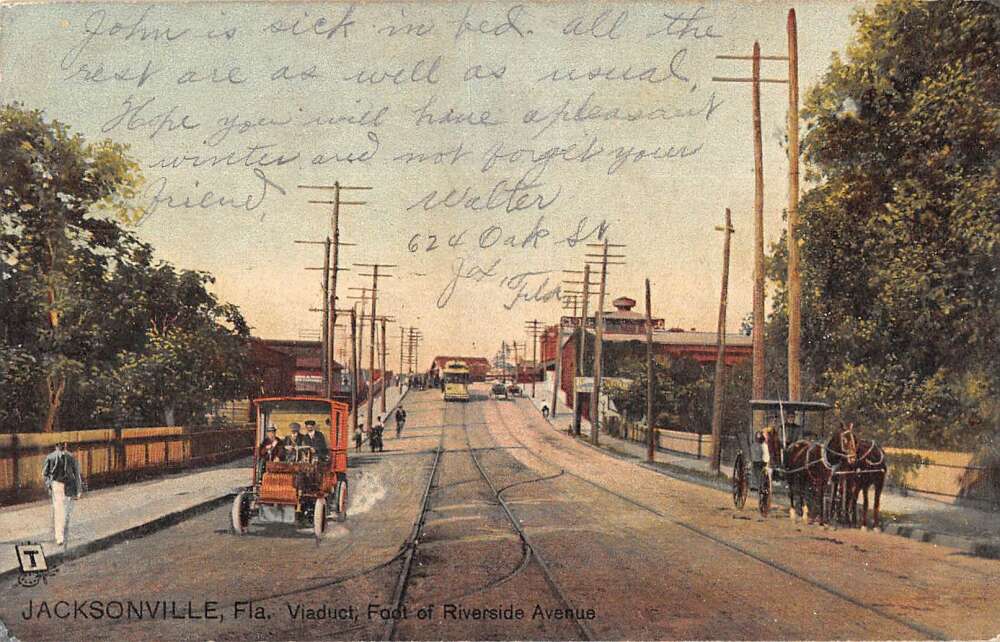 John is sick in bed. all the
rest are as well as usual,
Hope you will have a pleasant
winter and not forget your
friend,
Walter
624 Oak St
Jax,
Flda
T
JACKSONVILLE, Fla. Viaduct, Foot of Riverside Avenue